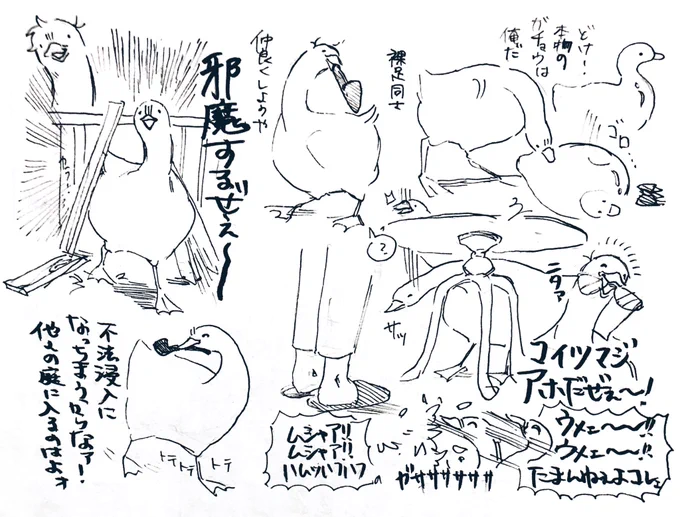 邪魔するぜぇ〜
仲良くしようや
裸足同士
どけ!
本物の
ガチョウは
俺だ
ゴロ…
?
サッ
ニタァ
コイツマジ
アホだぜぇ〜!
不法浸入に
なっちまうからなァ!
他人の庭に入るのはよォ
トテトテ トテ
ムシャア!!
ムシャア!!
ハムッハフハフ
ガササササササ
ウメェ〜〜!!
ウメェ〜〜!!
たまんねぇよコレぇ